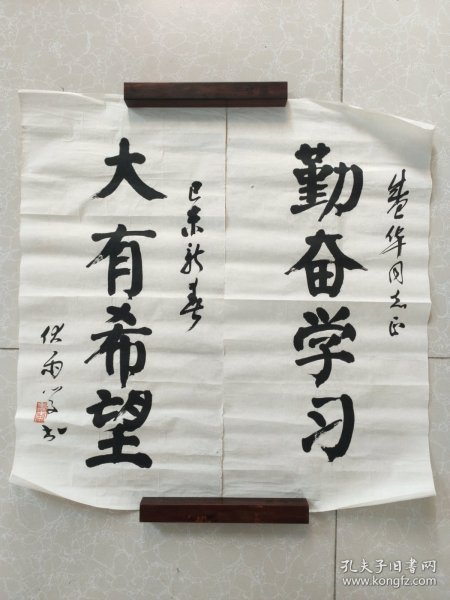 华同志正
勤奋学习
己未新春
大有希望
孔夫子旧书网
www.kongfz.com